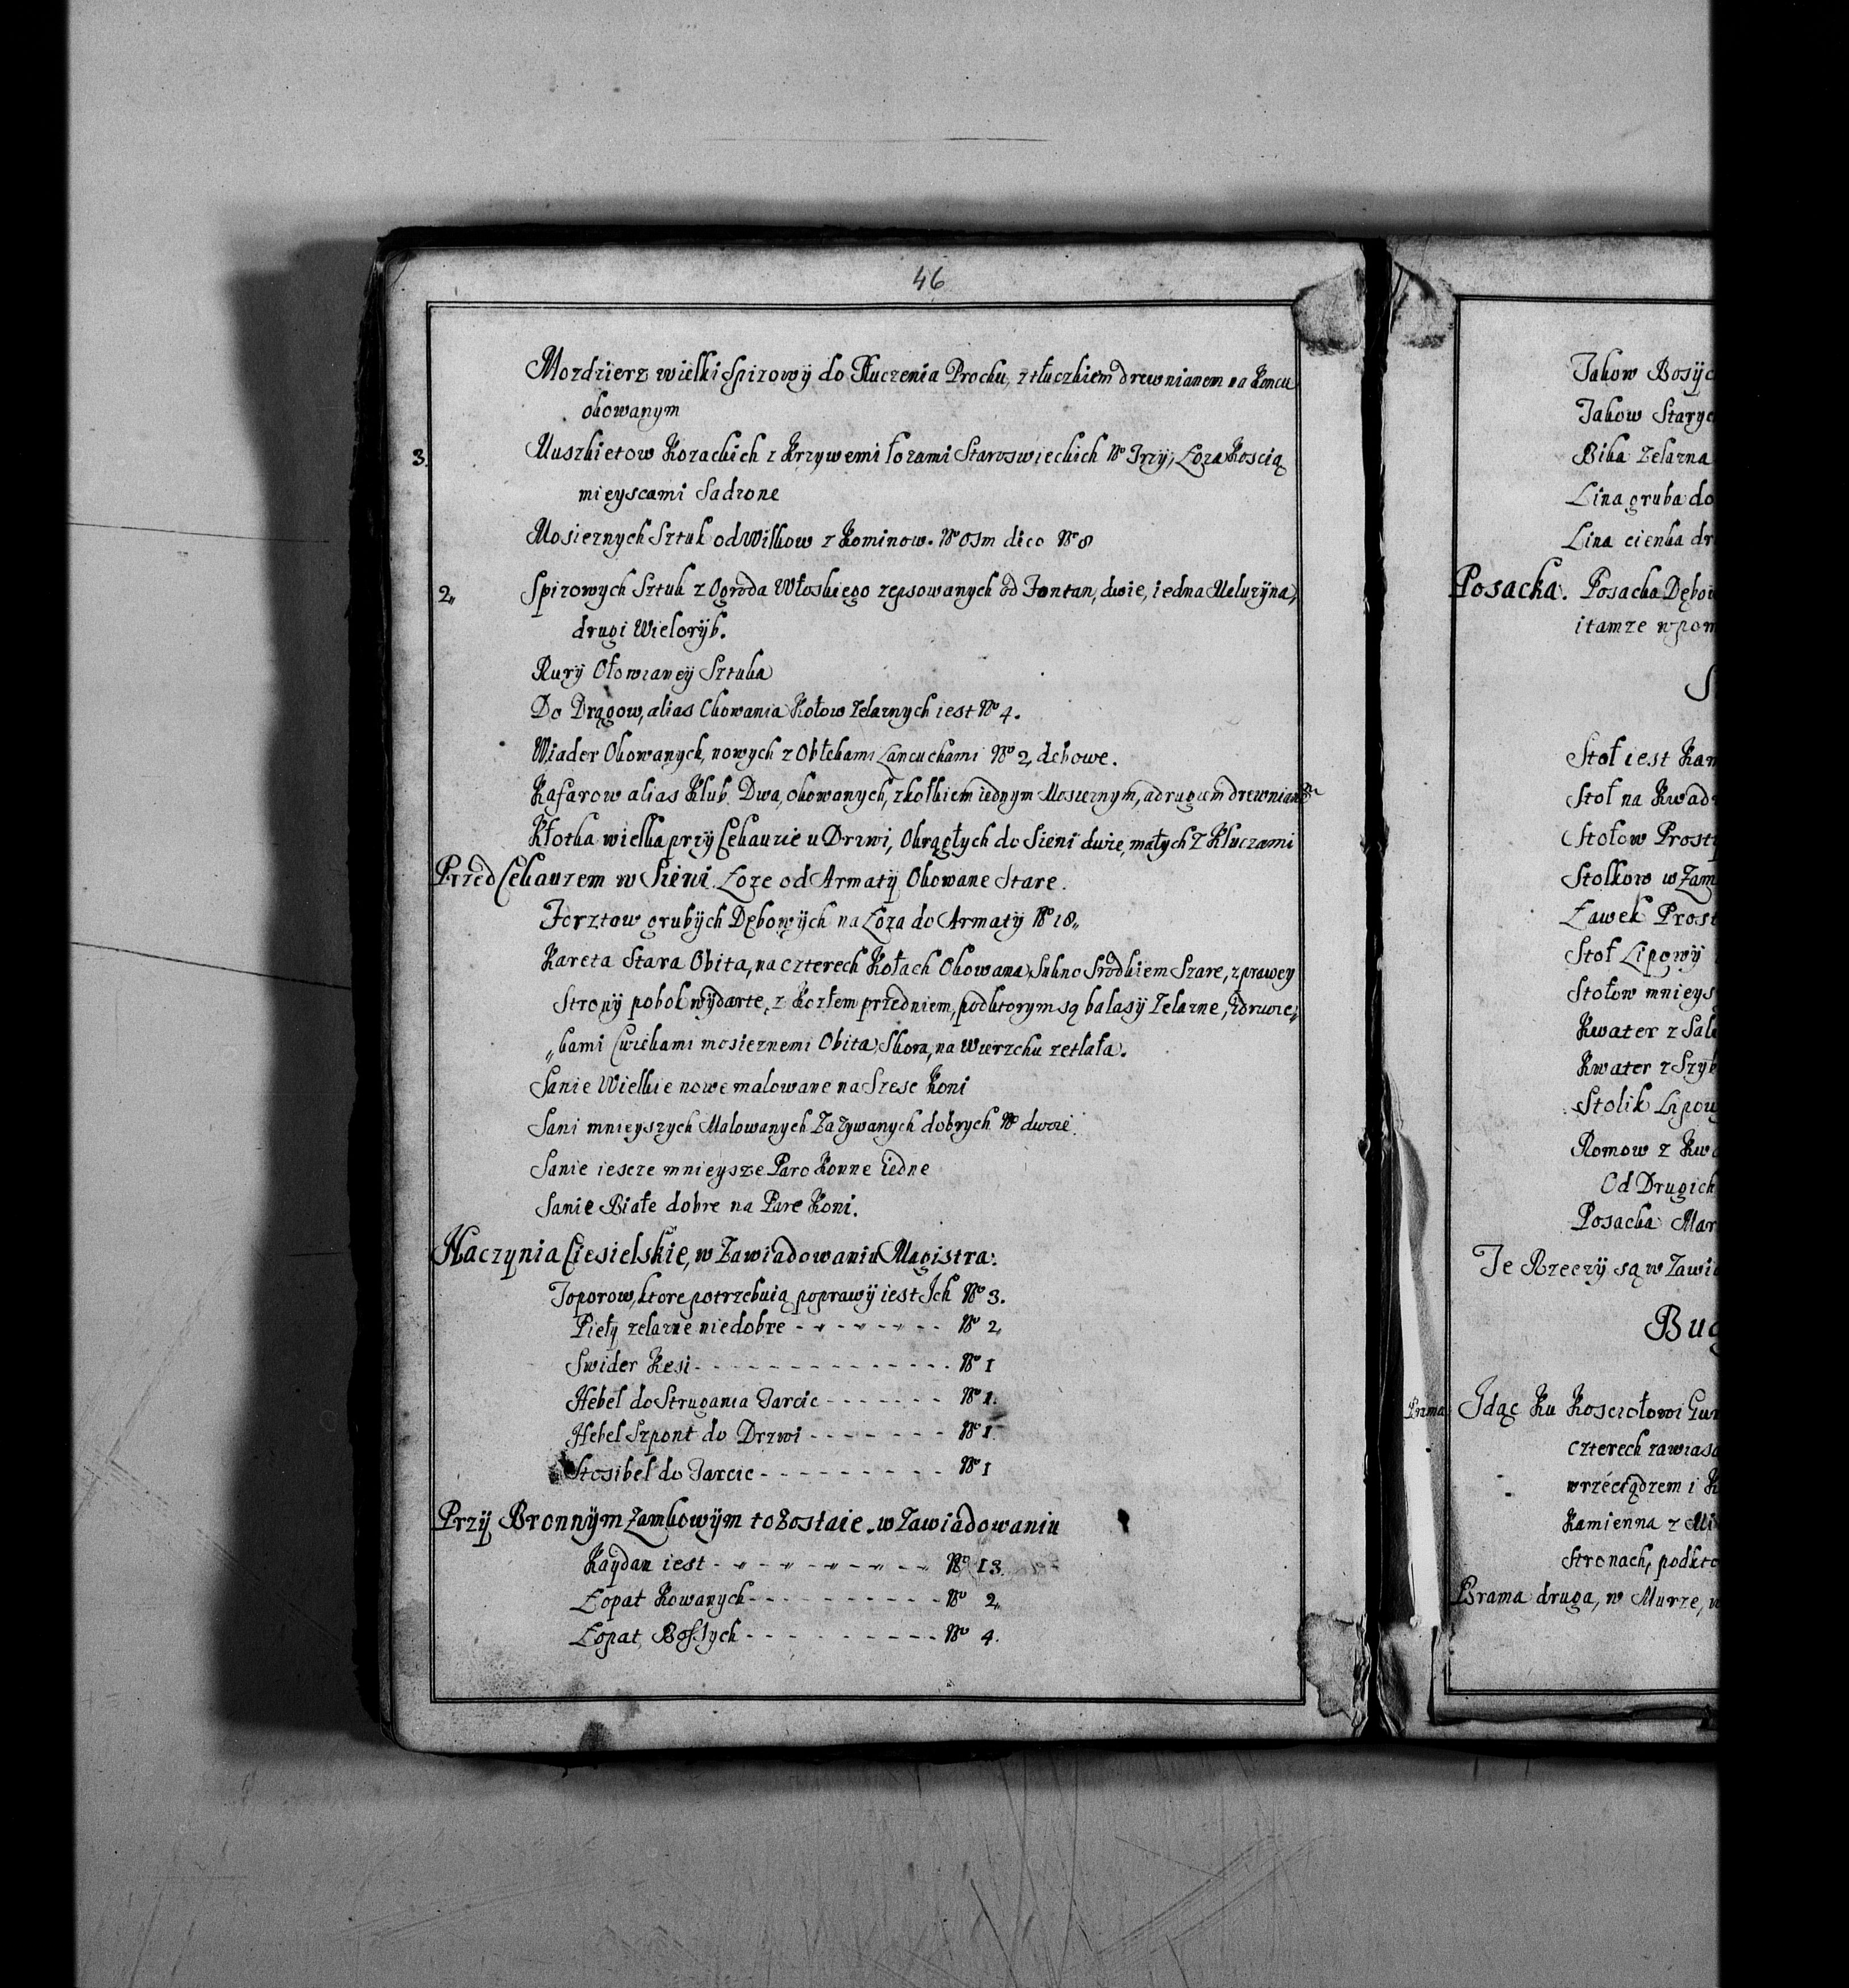 46
Mozdzierz wielki Spizowÿ do Tłuczenia Prochu, z tłuczkiem drewnianem na Koncu
okowanym
3. Muszkietow Kozackich z Krzywemi łozami Staroswieckich No Trzÿ, Łoza Koscią
mieyscami Sadzone
Mosieznych Sztuk od Wilkow z Kominow. No osm dico No 8
2,, Spizowych Sztuk z Ogroda Włoskiego zepsowanych od Fontan, dwie, iedna Meluzÿna,
drugi Wielorÿb.
Rurÿ Ołowianeÿ Sztuka
Do Drągow, alias Chowania Kołow Zelaznych iest No 4.
Wiader Okowanych, nowych z Obłekami Łancuchami No 2, debowe.
Kafarow alias Klub. Dwa, okowanych, z kołkiem iednym Mosieznym, a drugiem drewnianem
Kłotka wielka przÿ Cekauzie u Drzwi, Okrągłych do Sieni dwie, małych z Kluczami
Przed Cekauzem w Sieni. Łoze od Armatÿ Okowane Stare.
Forztow grubÿch Dębowÿch na Łoza do Armatÿ No 18,,
Kareta Stara Obita, na czterech Kołach Okowana, Sukno Srodkiem Szare, z prawey
Stronÿ pobok wÿdarte, z Kozłem przedniem, pod ktorym są balasÿ Zelazne,
,,kami Cwiekami mosieznemi Obita, Skora, na Wierzchu zetlała.
Sanie Wielkie nowe malowane na Szesc Koni
Sani mnieyszych Malowanych Zazywanych dobrych No dwoie.
Sanie iescze mnieysze Paro Konne iedne
Sanie Białe dobre na Pare Koni.
Naczynia Ciesielskie, w Zawiadowaniu Magistra:
Toporow, ktore potrzebuią poprawÿ iest Jch No 3.
Piełÿ zelazne niedobre - - - - - - - No 2,
Swider Kesi - - - - - - - - - - - - - - No 1
Hebel do Strugania Tarcic - - - - - - - No 1.
Hebel Szpont do Drzwi - - - - - - - No 1.
Stosibel do Tarcic - - - - - - - - - No 1
Przÿ Bronnÿm Zamkowÿm to Zostaie w Zawiadowaniu
Kaydan iest - - - - - - - - - No 13.
Łopat Kowanych - - - - - - - - - - No 2,
Łopat Bosych - - - - - - - - - - No 4.
Jakow Bosÿc
Jakow Staryc
Bika Zelazna
Lina gruba do
Lina cienka dr
Posacka. Posacka Dębow
i tamze w pom
S
Stoł iest Kam
Stoł na Kwad
Stołow Prost
Stolkow w Zam
Ławek Prost
Stoł Lipowÿ
Stołow mnieys
Kwater z Sal
Kwater z Szyb
Stolik Lipow
Romow z Kwa
Od Drugich
Posacka Mar
Te Rzeczÿ są w Zawia
Bud
Brama Jdąc Ku Kosciołowi
czterech zawias
wrzeciądzem i K
Kamienna z Mi
Stronach, pod kto
Brama druga, w Murze, w